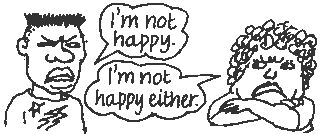 I'm not
happy.
I'm not
happy either.